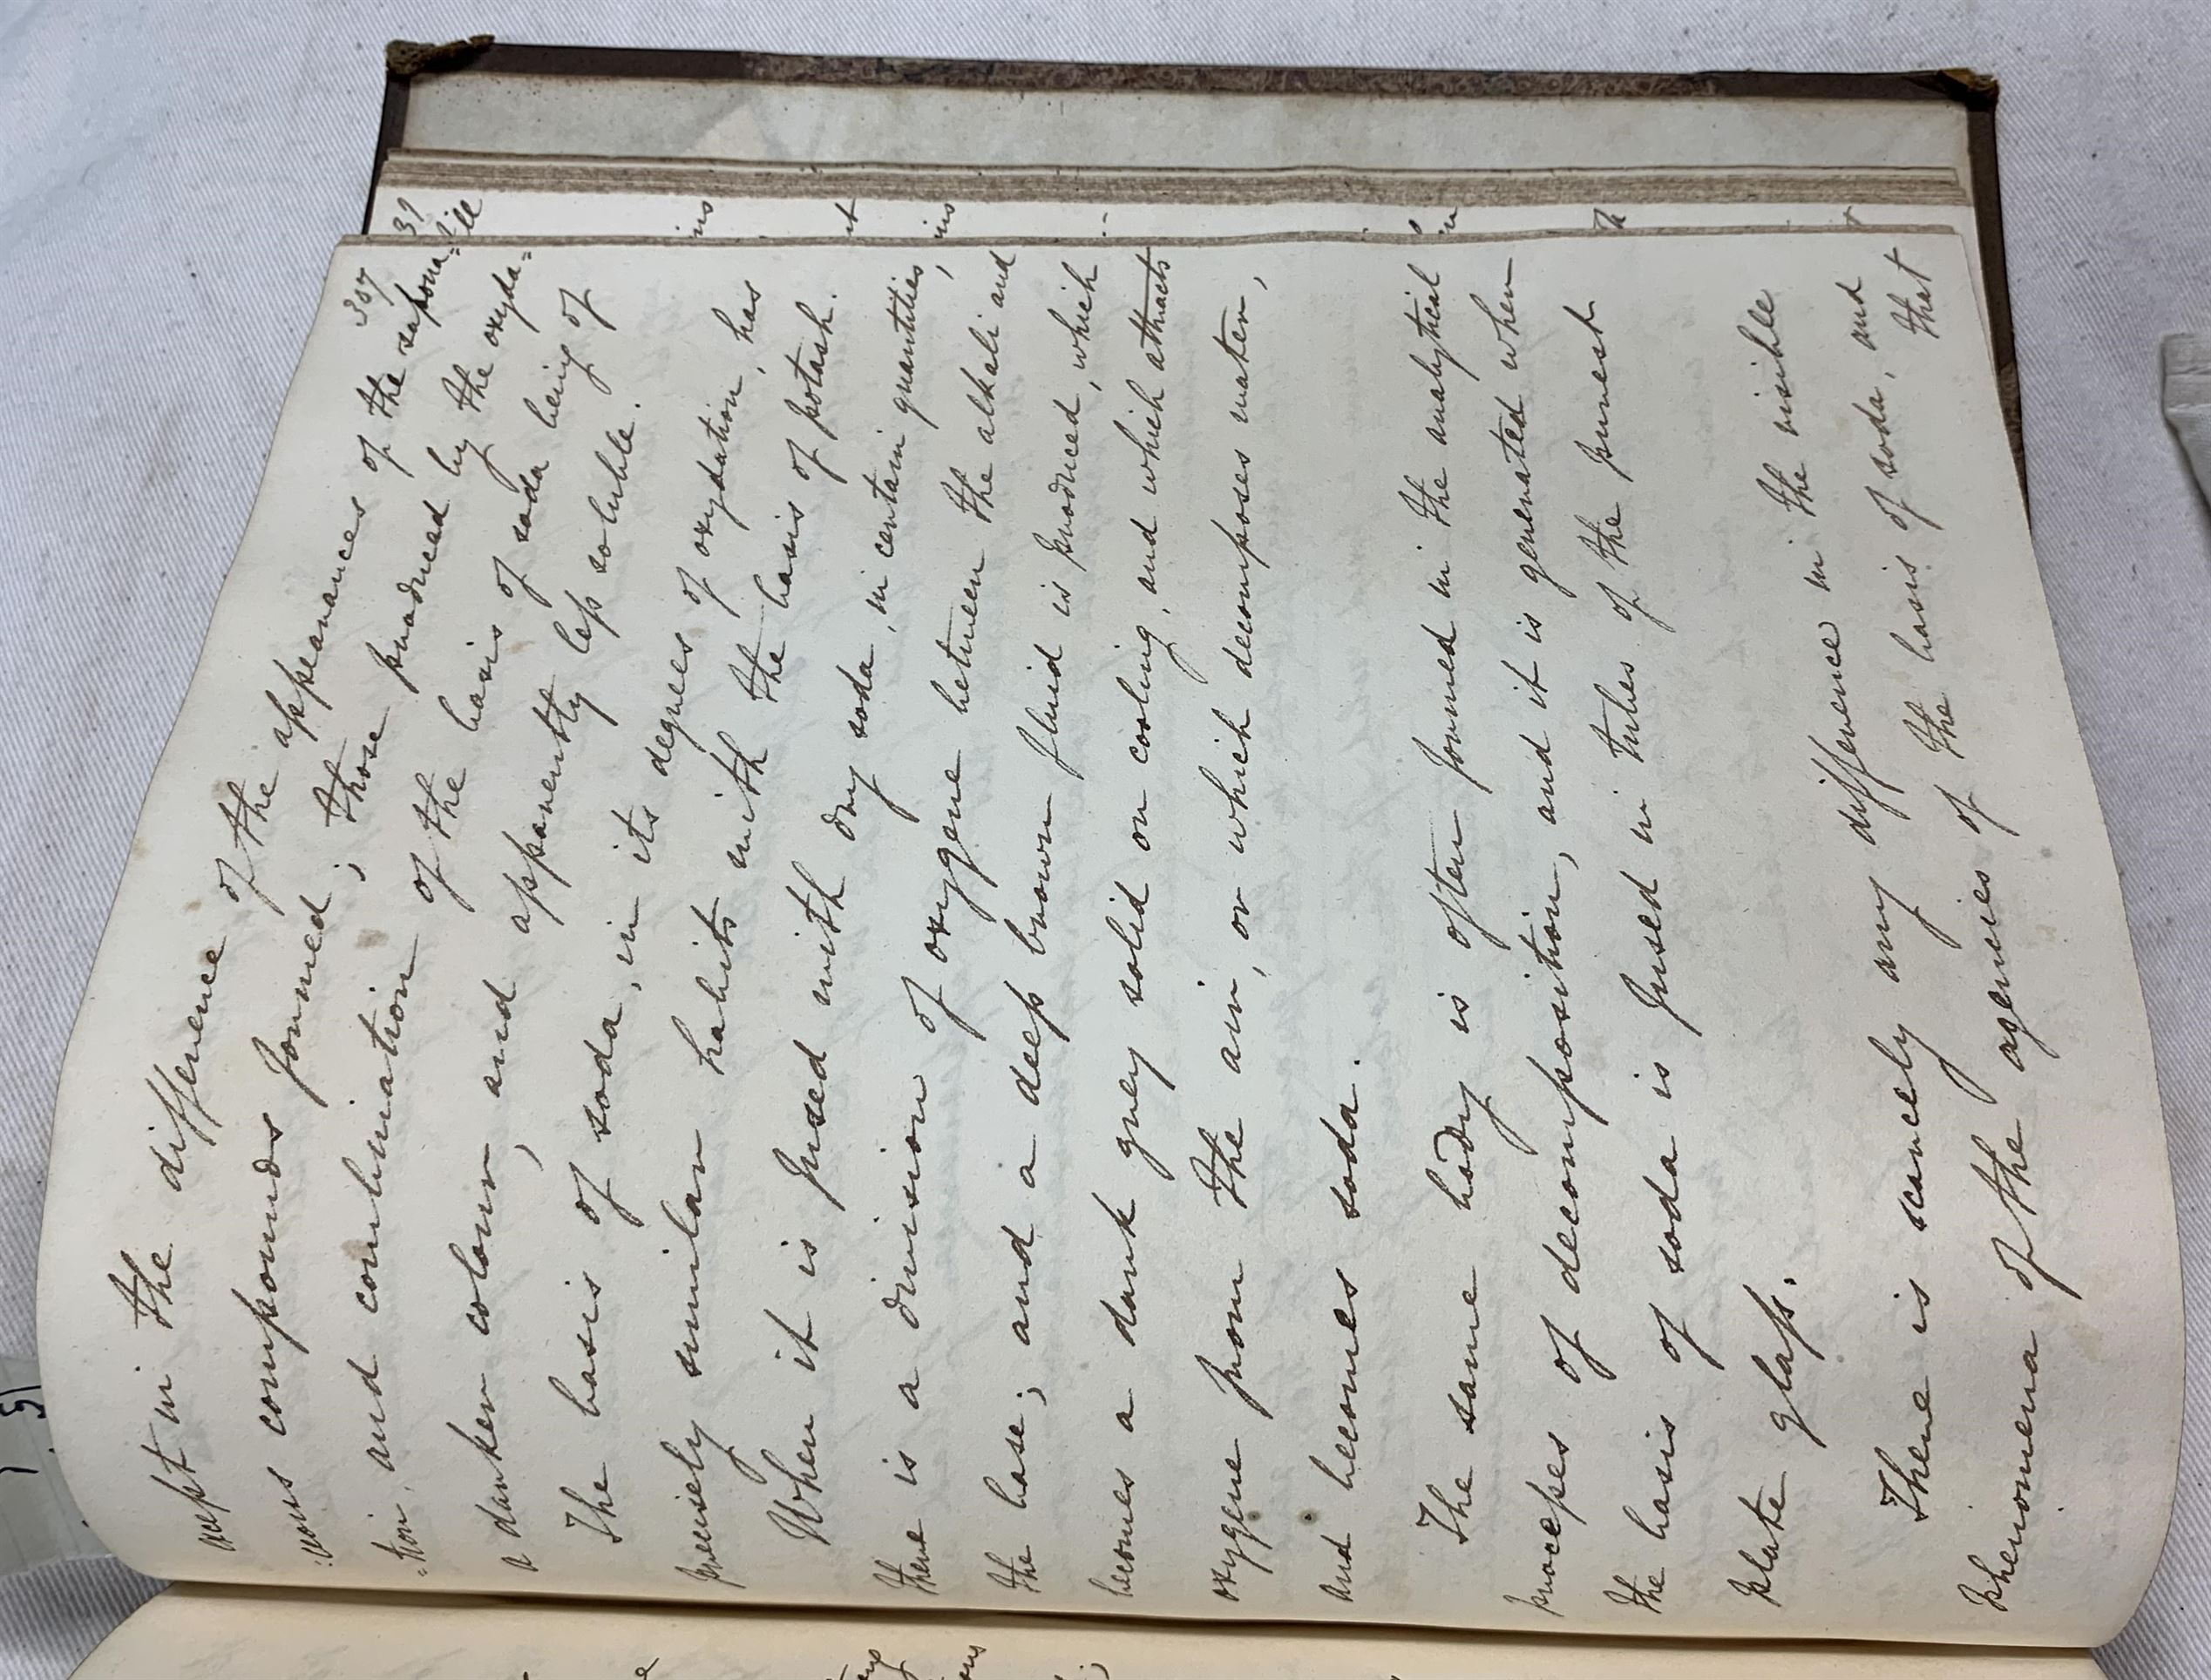 307
except in the difference of the appearances of the sapona=
:ceous compounds formed; those produced by the oxyda=
=tion, and combination of the basis of soda being of
a darker colour, and apparently less soluble.
The basis of soda, in its degrees of oxydation, has
precisely similar habits with the basis of potash.
When it is fused with dry soda, in certain quantities,
there is a division of oxygene between the alkali and
the base; and a deep brown fluid is produced, which
becomes a dark grey solid on cooling, and which attracts
oxygene from the air, or which decomposes water,
and becomes soda.
The same body is often formed in the analytical
processes of decomposition, and it is generated when
the basis of soda is fused in tubes of the purest
plate glass.
There is scarcely any difference in the visible
phenomena of the agencies of the basis of soda, and that